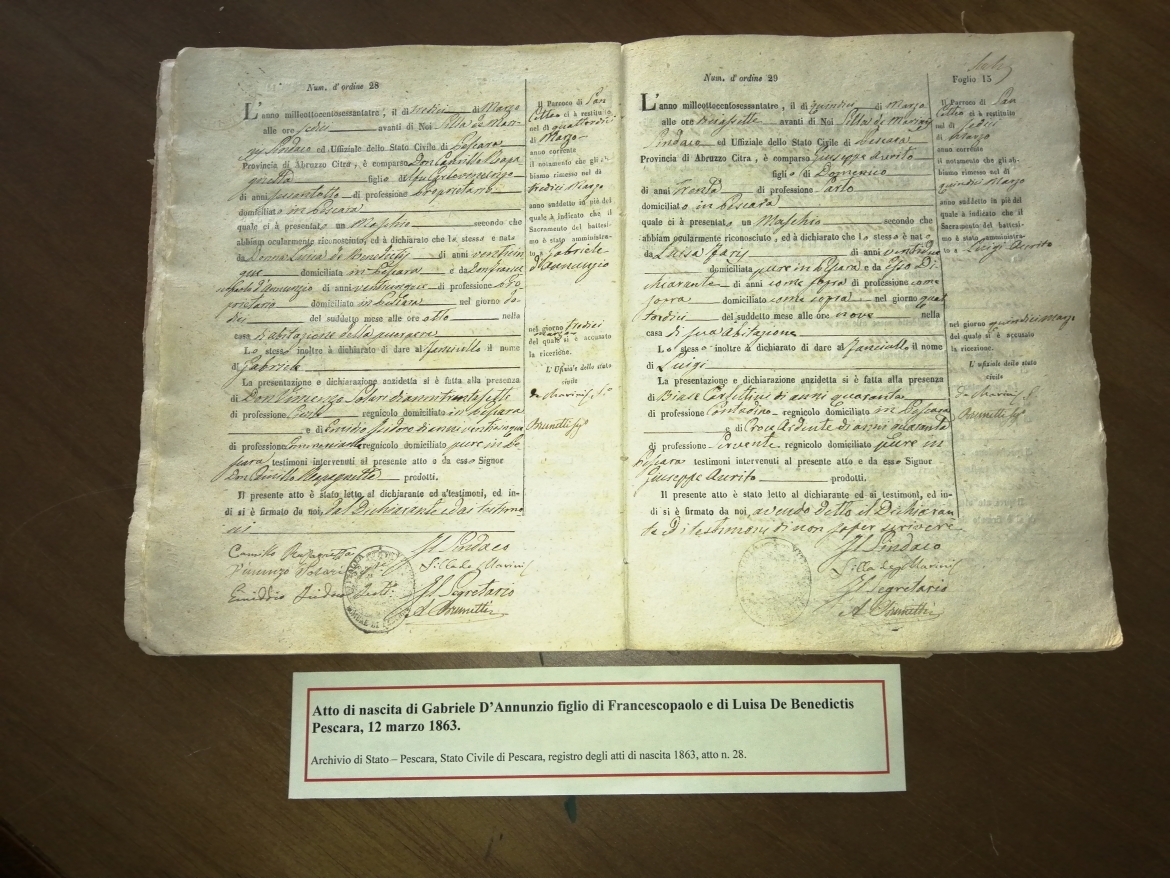 Num. d'ordine 28
L'anno milleottocentosessantatre, il dì tredici di Marzo
alle ore sedici avanti di Noi Silla de Mari-
nis Sindaco ed Uffiziale dello Stato Civile di Pescara
Provincia di Abruzzo Citra, è comparso Don Camillo Rapa
gnetta figlio di
di anni sessantotto di professione proprietario
domiciliato in Pescara
quale ci à presentato un Maschio secondo che
abbiam ocularmente riconosciuto, ed à dichiarato che lo stesso è nato
da Donna Luisa de Benedictis di anni venticin
que domiciliata in Pescara e da Don France
scopaolo d'Annunzio di anni venticinque di professione pro
prietario domiciliato in Pescara nel giorno do
dici del suddetto mese alle ore otto nella
casa d'abitazione della
Lo stesso inoltre à dichiarato di dare al fanciullo il nome
di Gabriele
La presentazione e dichiarazione anzidetta si è fatta alla presenza
di Don Vincenzo Solari di anni trentasette
di professione regnicolo domiciliato in Pescara
e di Emidio Isidoro di anni venticinque
di professione regnicolo domiciliato pure in Pe
scara testimoni intervenuti al presente atto e da esso Signor
Don Camillo Rapagnetta prodotti.
Il presente atto è stato letto al dichiarante ed a'testimoni, ed in-
di si è firmato da noi, dal Dichiarante e dai testimo
ni
Camillo Rapagnetta
Vincenzo Solari
Emiddio Isidoro
Il Sindaco
Silla de Marinis
Il Segretario
A. Brunetti
Il Parroco di San
Cetteo ci à restituito
nel dì quattordici
di Marzo
anno corrente
il notamento che gli ab-
biamo rimesso nel dì
tredici Marzo
anno suddetto in piè del
quale à indicato che il
Sacramento del battesi-
mo è stato amministra-
to a Gabriele
d'Annunzio
nel giorno tredici
marzo
del quale si è accusato
la ricezione.
L'Ufiziale dello stato
civile
de Marinis
Brunetti
Num. d'ordine 29
L'anno millecottocentosessantatre, il dì quindici di Marzo
alle ore diciassette avanti di Noi Silla de Marinis
Sindaco ed Uffiziale dello Stato Civile di Pescara
Provincia di Abruzzo Citra, è comparso Giuseppe Aurito
figlio di Domenico
di anni trenta di professione Sarto
domiciliato in Pescara
quale ci à presentato un Maschio secondo che
abbiam ocularmente riconosciuto, ed à dichiarato che lo stesso è nato
da Luisa di anni ventidue
domiciliata pure in Pescara e da Esso Di
chiarante di anni come sopra di professione come
sopra domiciliato come sopra nel giorno quat
tordici del suddetto mese alle ore nove nella
casa di sua abitazione
Lo stesso inoltre à dichiarato di dare al fanciullo il nome
di Luigi
La presentazione e dichiarazione anzidetta si è fatta alla presenza
di Biase di anni quaranta
di professione Contadino regnicolo domiciliato in Pescara
e di Croce Ardente di anni quaranta
di professione Servente regnicolo domiciliato pure in
Pescara testimoni intervenuti al presente atto e da esso Signor
Giuseppe Aurito prodotti.
Il presente atto è stato letto al dichiarante ed ai testimoni, ed in-
di si è firmato da noi, avendo detto il Dichiaran
te e testimoni di non saper scrivere
Il Sindaco
Silla de Marinis
Il Segretario
A. Brunetti
Foglio 15
Il Parroco di San
Cetteo ci à restituito
nel dì sedici
di Marzo
anno corrente
il notamento che gli ab-
biamo rimesso nel dì
quindici Marzo
anno suddetto in piè del
quale à indicato che il
Sacramento del battesi-
mo è stato amministra-
to a Luigi Aurito
nel giorno quindici Marzo
del quale si è accusato
la ricezione.
L'Ufiziale dello stato
civile
de Marinis
Brunetti
Atto di nascita di Gabriele D'Annunzio figlio di Francescopaolo e di Luisa De Benedictis
Pescara, 12 marzo 1863.
Archivio di Stato – Pescara, Stato Civile di Pescara, registro degli atti di nascita 1863, atto n. 28.